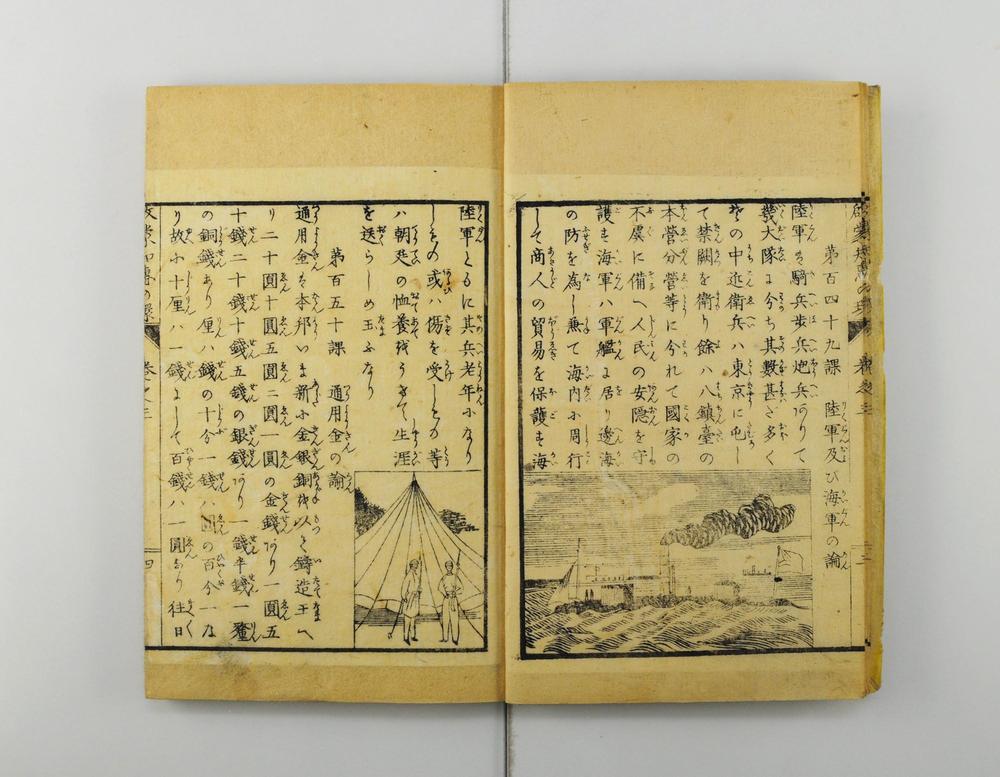 第百四十九課　陸軍及び海軍の論
陸軍ハ騎兵歩兵炮兵ありて
幾大隊に分ち其數甚ざ多く
其の中近衛兵ハ東京に屯し
て禁闕を衛り餘ハ八鎮臺の
本營分營等に分れて國家の
不虞に備へ人民の安隠を守
護も海軍ハ軍艦に居り邊海
の防を為し兼て海内に周行
して商人の貿易を保護も海
陸軍ともに其兵老年になり
しもの或ハ傷を受しもの等
ハ朝廷の恤養ありて生涯
を送らしめ玉ふなり
第百五十課　通用金の論
通用金ハ本邦いま新に金銀銅を以て鑄造玉へ
り二十圓十圓五圓二圓一圓の金錢あり一圓五
十錢二十錢十錢五錢の銀錢あり一錢半錢一釐
の銅錢あり厘ハ錢の十分一錢ハ圓の百分一な
り故に十厘ハ一錢にして百錢ハ一圓なり往日
卷之三
四